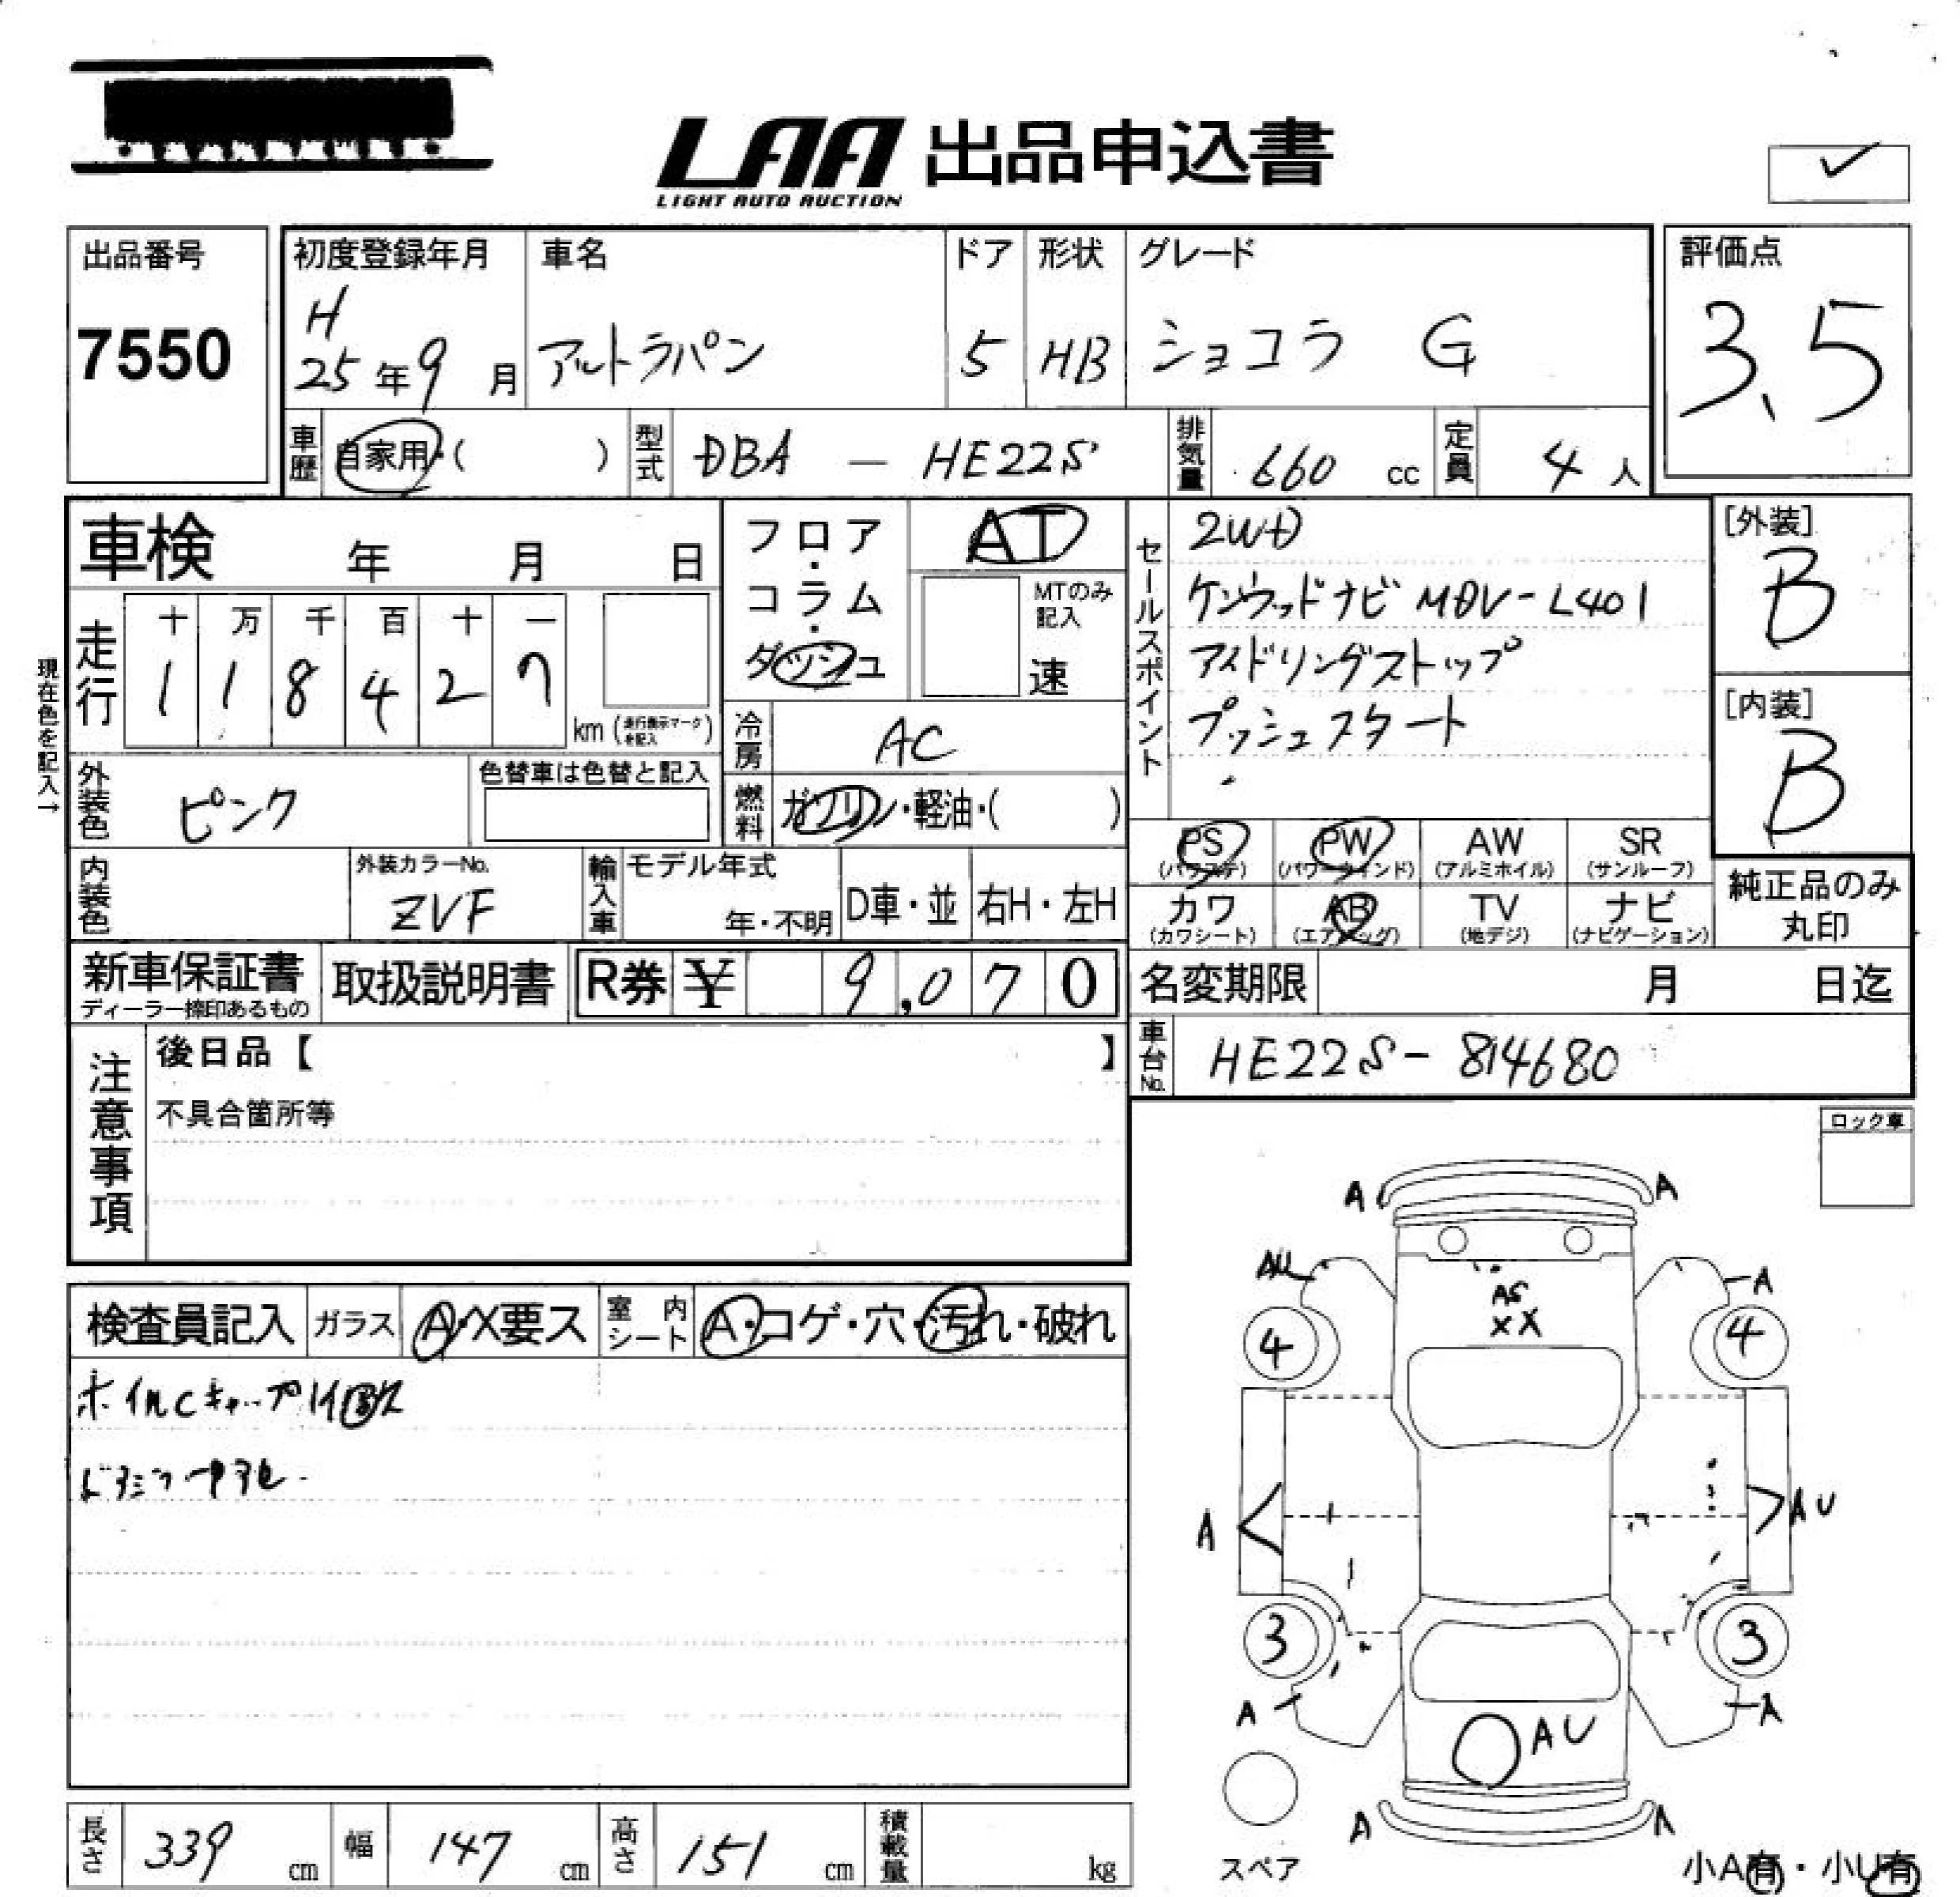 LAA 出品申込書
LIGHT AUTO AUCTION
出品番号
7550
初度登録年月
H
25年9月
車名
アルトラパン
ドア
5
形状
HB
グレード
ショコラ G
評価点
3.5
車歴 自家用・( )
型式 DBA - HE22S
排気量 660 cc
定員 4 人
車検 年 月 日
フロア・コラム・ダッシュ
AT
MTのみ記入
速
セールスポイント
2WD
ケンウッドナビ MDV-L401
アイドリングストップ
プッシュスタート
[外装]
B
[内装]
B
現在色を記入→
走行
十 万 千 百 十 一
1 1 8 4 2 7
km (走行表示マークを記入)
冷房 AC
外装色 ピンク
色替車は色替と記入
燃料 ガソリン・軽油・( )
PS (パワステ)
PW (パワーウインド)
AW (アルミホイル)
SR (サンルーフ)
カワ (カワシート)
AB (エアバッグ)
TV (地デジ)
ナビ (ナビゲーション)
純正品のみ
丸印
内装色
外装カラーNo.
ZVF
輸入車
モデル年式
年・不明
D車・並
右H・左H
新車保証書
ディーラー捺印あるもの
取扱説明書
R券 ¥ 9,070
名変期限 月 日迄
車台No. HE22S-814680
注意事項
後日品【 】
不具合箇所等
ロック車
検査員記入
ガラス A・X要ス
室内シート A・コゲ・穴・汚れ・破れ
A A
AU A
AS
XX
4 4
A AU
3 3
A A
AU
A A
スペア
小A有・小U有
長さ 339 cm
幅 147 cm
高さ 151 cm
積載量 kg